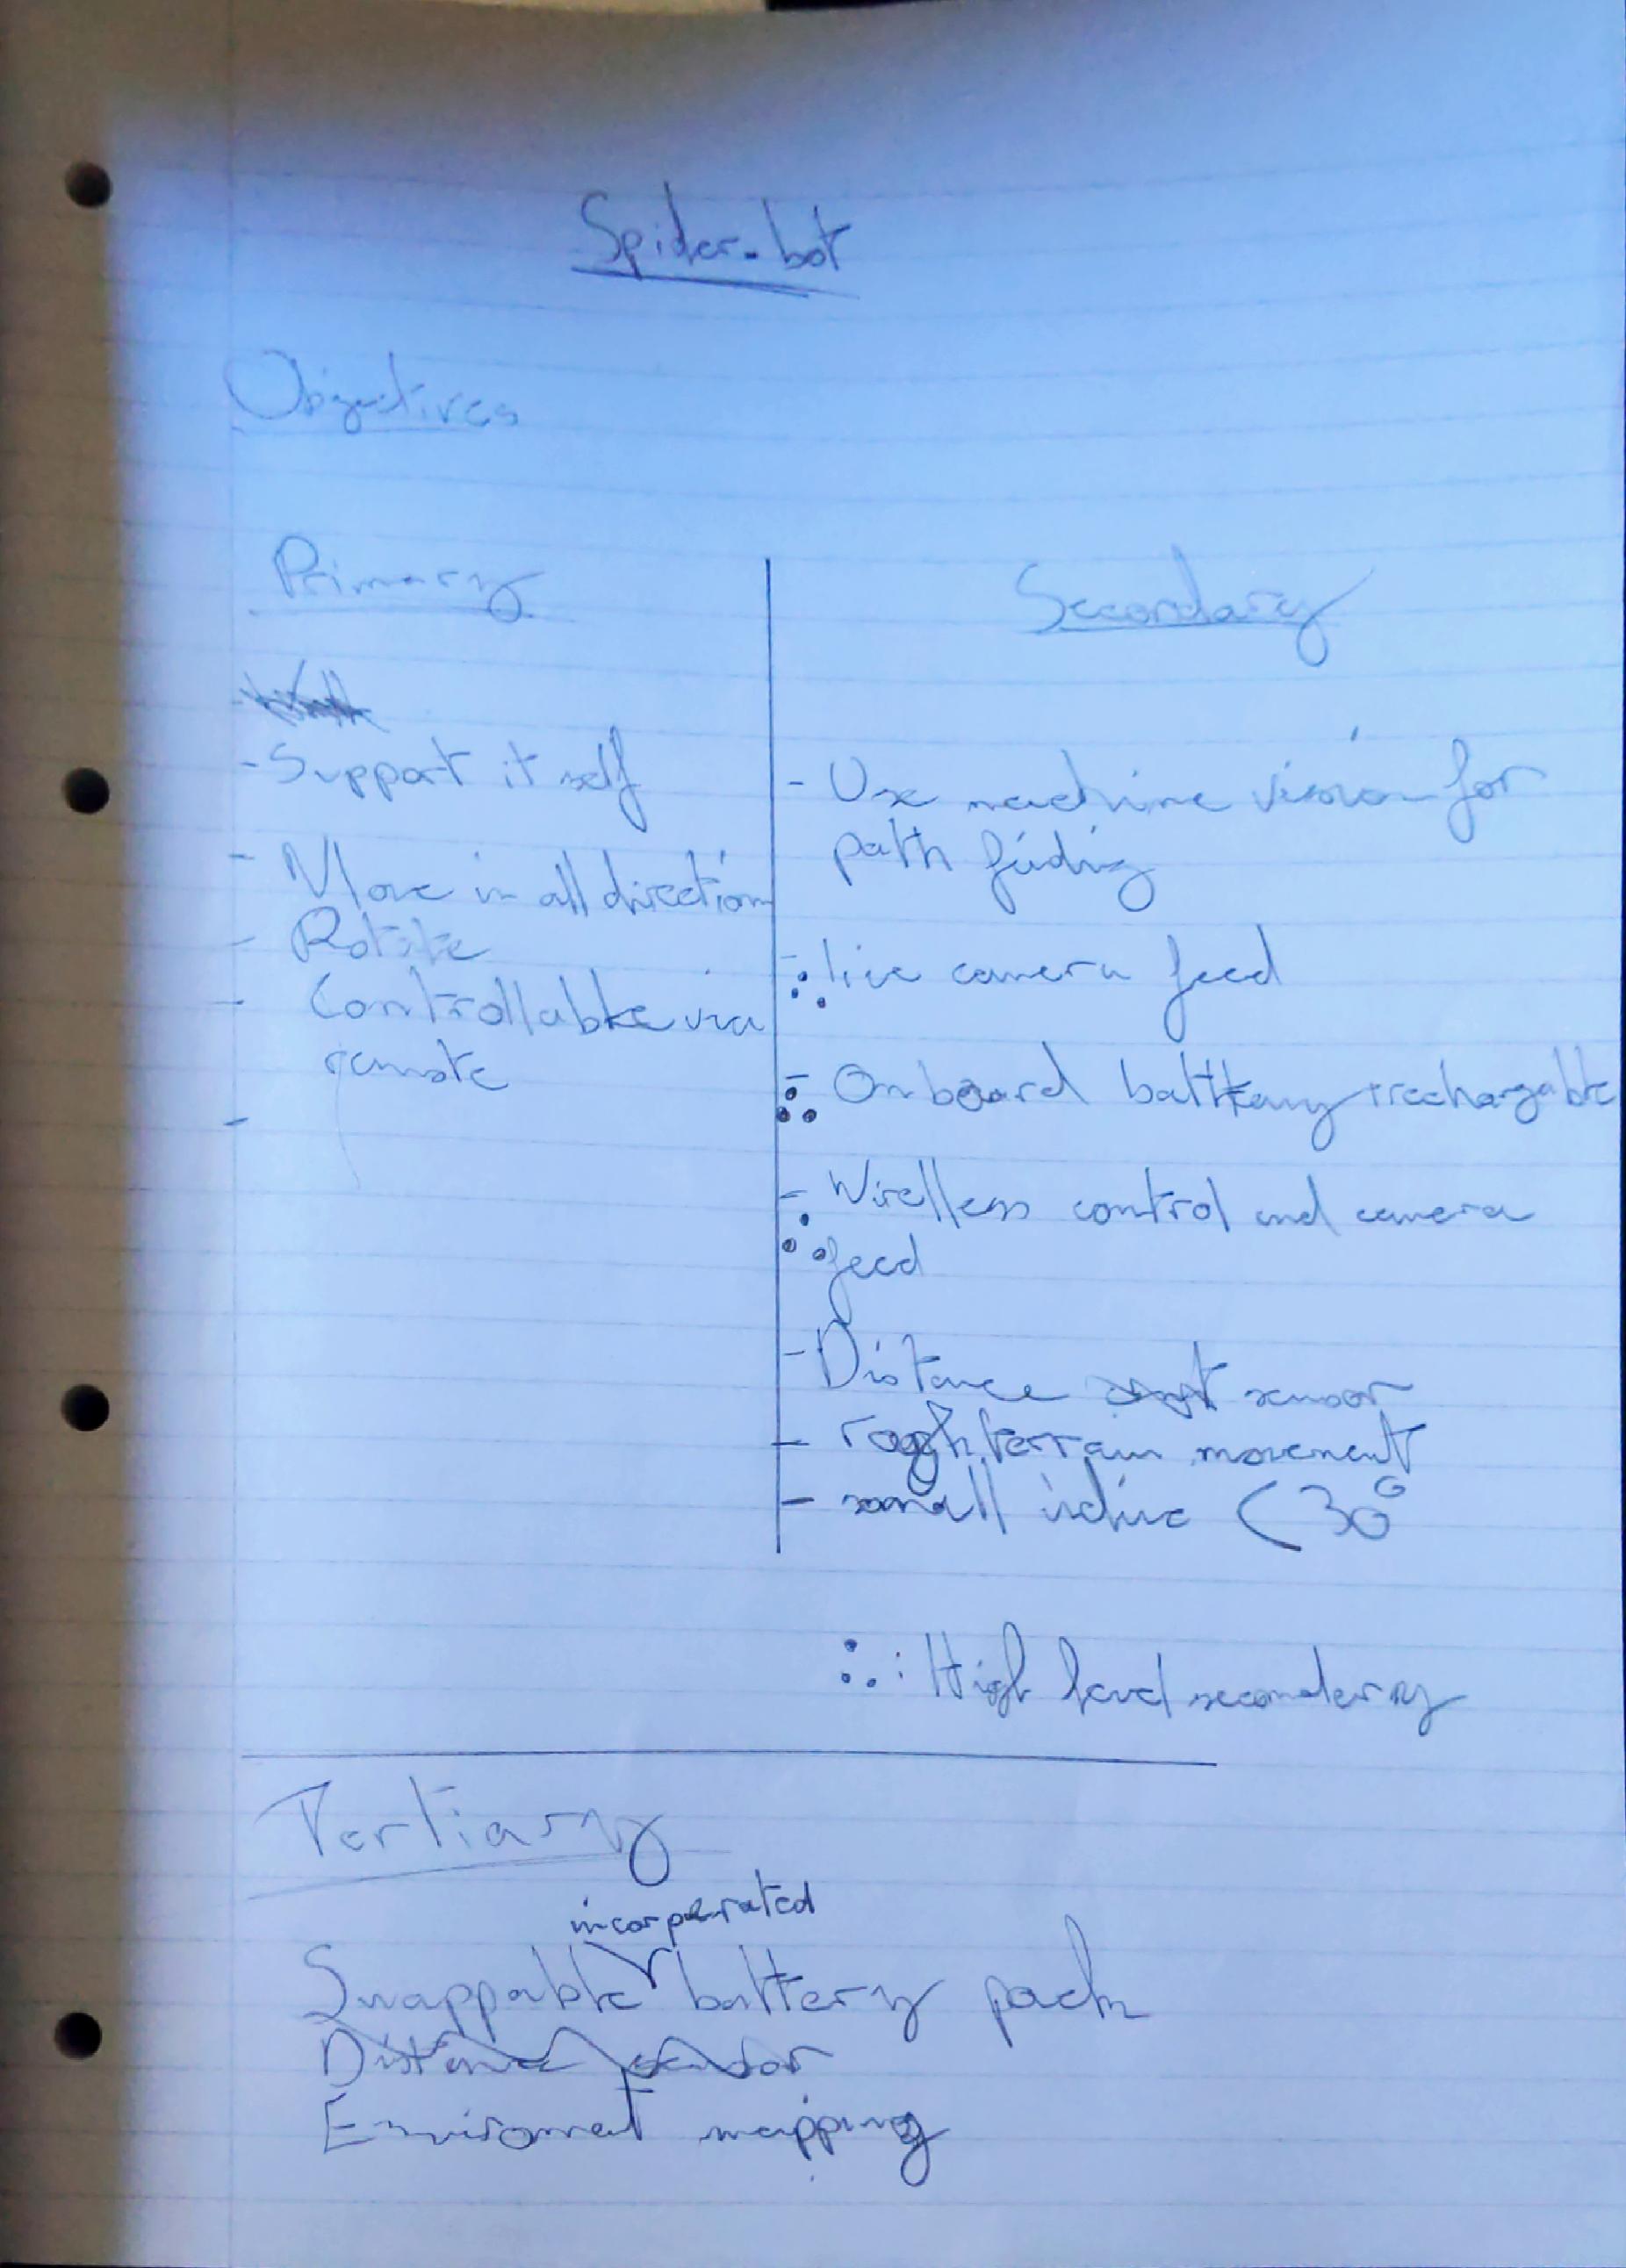 Spider-bot
Objectives
Primary
- Support it self
- Move in all direction
- Rotate
- Controllable via
remote
-
Secondary
- Use machine vision for
path finding
- live camera feed
- Onboard battery rechargable
- Wirelless control and camera
feed
- Distance sensor
- rough terrain movement
- small incline (30°
∴ : High level secondary
Tertiary
incorperated
Swappable battery pack
Distance sensor
Enviroment mapping